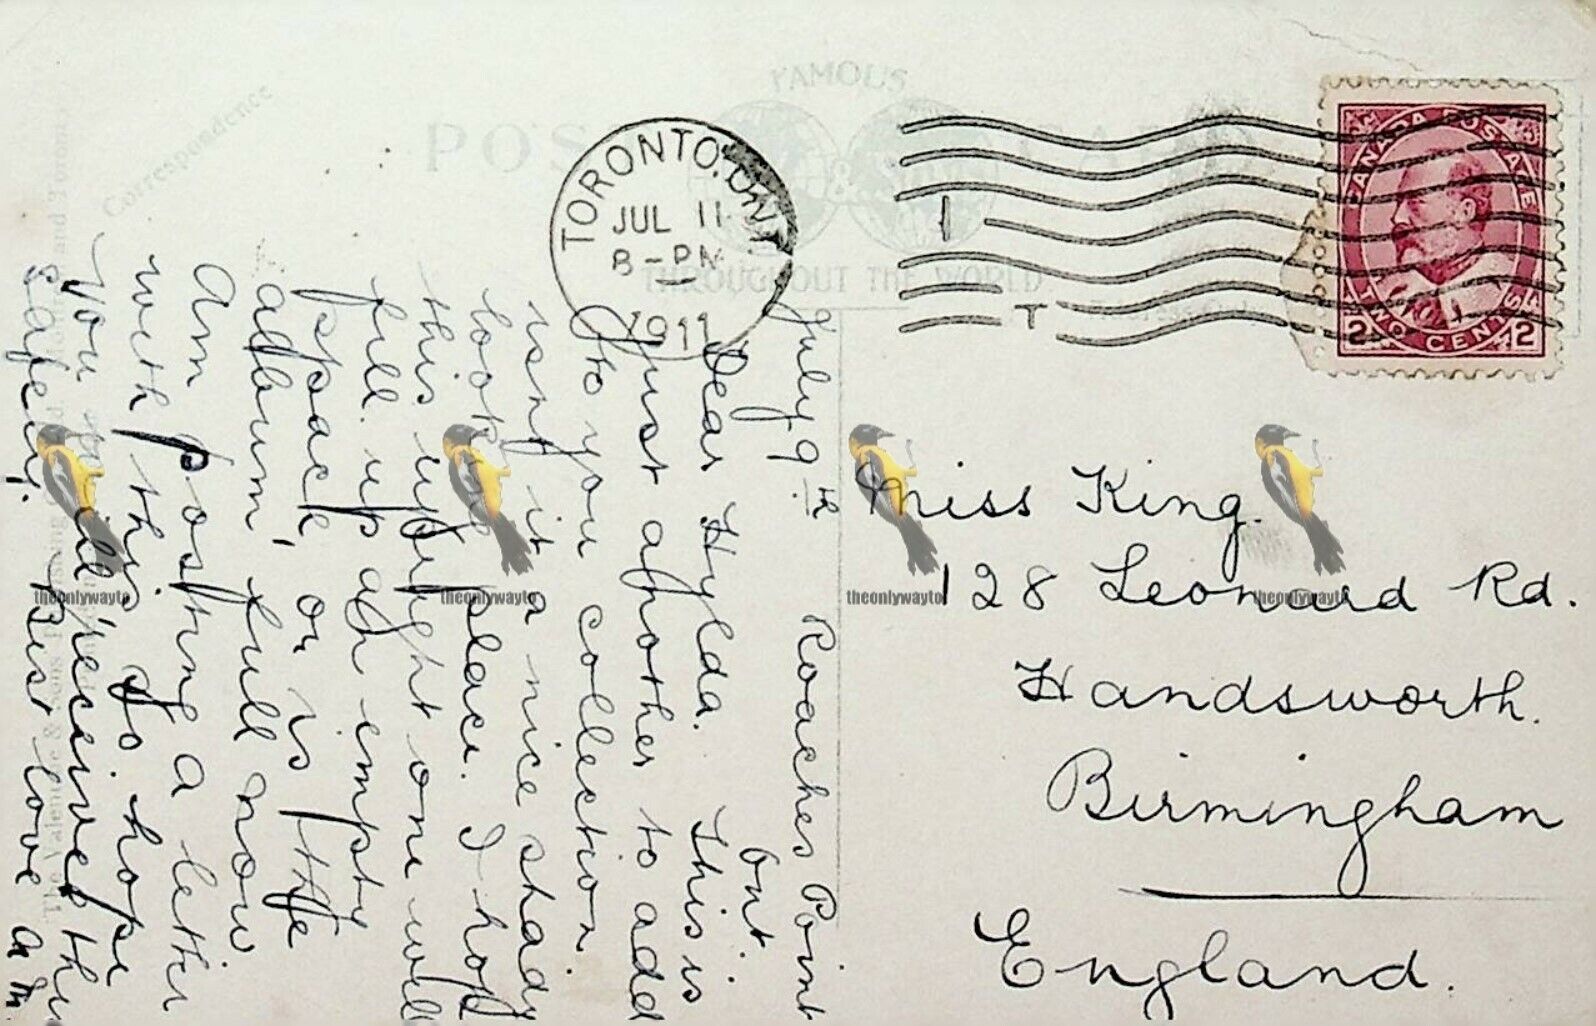 FAMOUS
POST CARD
THROUGHOUT THE WORLD
Correspondence
TORONTO, ONT
JUL 11
8-PM
1911
T
CANADA POSTAGE
2 TWO CENTS 2
July 9th Roaches Point
Ont.
Dear Hylda. This is
Just another to add
to you collection.
isn't it a nice shady
looking place. I hope
this upright one will
fill up an empty
space or is the
album, full now
Am posting a letter
with this, so hope
you will receive this
safely. Best love
Miss King.
128 Leonard Rd.
Handsworth.
Birmingham
England.
theonlywayto
theonlywayto
theonlywayto
theonlywayto